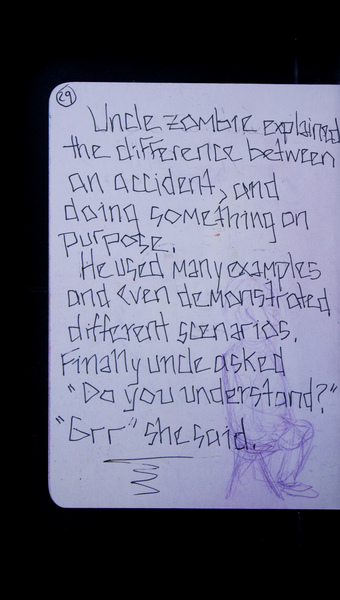 29
Uncle zombie explained
the difference between
an accident, and
doing something on
purpose.
He used many examples
and even demonstrated
different scenarios.
Finally uncle asked
"Do you understand?"
"Grr" she said.